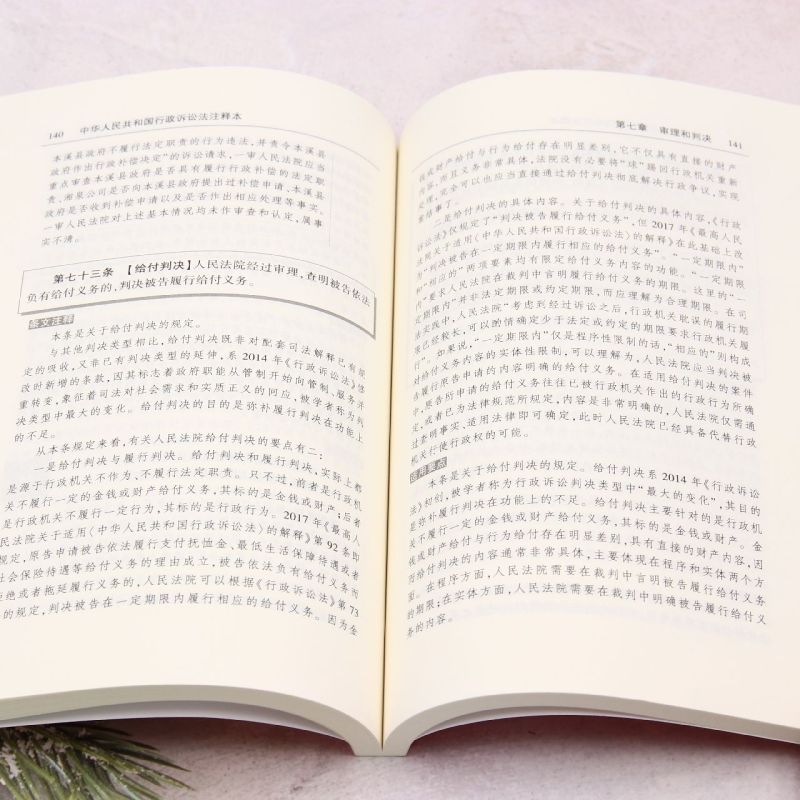 140 中华人民共和国行政诉讼法注释本
本溪县政府不履行法定职责的行为违法，并责令本溪县
政府作出行政补偿决定”的诉讼请求，一审人民法院应当
重点审查本溪县政府是否具有履行行政补偿的法定职
责，湘泉公司是否向本溪县政府提出过补偿申请，本溪县
政府是否收到补偿申请以及是否作出相应处理等事实。
一审人民法院对上述基本情况均未作审查和认定，属事
实不清。
第七十三条 【给付判决】人民法院经过审理，查明被告依法
负有给付义务的，判决被告履行给付义务。
条文注释
本条是关于给付判决的规定。
与其他判决类型相比，给付判决既非对配套司法解释已有规
定的吸收，又非已有判决类型的延伸，系 2014 年《行政诉讼法》修
改时新增的条款，因其标志着政府职能从管制开始向管制、服务并
重转变，象征着司法对社会需求和实质正义的回应，被学者称为判
决类型中最大的变化。给付判决的目的是弥补履行判决在功能上
的不足。
从本条规定来看，有关人民法院给付判决的要点有二：
一是给付判决与履行判决。给付判决和履行判决，实际上都
是源于行政机关不作为、不履行法定职责。只不过，前者是行政机
关不履行一定的金钱或财产给付义务，其标的是金钱或财产；后者
是行政机关不履行一定行为，其标的是行政行为。2017 年《最高人
民法院关于适用〈中华人民共和国行政诉讼法〉的解释》第 92 条即
规定，原告申请被告依法履行支付抚恤金、最低生活保障待遇或者
社会保险待遇等给付义务的理由成立，被告依法负有给付义务而
拒绝或者拖延履行义务的，人民法院可以根据《行政诉讼法》第 73
条的规定，判决被告在一定期限内履行相应的给付义务。因为金
第七章 审理和判决 141
钱或财产给付与行为给付存在明显差别，它不仅具有直接的财产
内容，而且义务非常具体，法院没有必要将“球”踢回行政机关重新
处理，完全可以也应当直接通过给付判决彻底解决行政争议，实现
案结事了。
二是给付判决的具体内容。关于给付判决的具体内容，《行政
诉讼法》仅规定了“判决被告履行给付义务”，但 2017 年《最高人民
法院关于适用〈中华人民共和国行政诉讼法〉的解释》在此基础上改
为“判决被告在一定期限内履行相应的给付义务”。“一定期限内”
和“相应的”两项要素均有限定给付义务内容的功能。“一定期限
内”要求人民法院在裁判中言明履行给付义务的期限。这里的“一
定期限内”并非法定期限或约定期限，而应理解为合理期限。在司
法实践中，人民法院“考虑到经过诉讼之后，行政机关耽误的履行期
限已经较长，可以酌情确定少于法定或约定的期限要求行政机关履
行”。如果说，“一定期限内”仅是程序性限制的话，“相应的”则构成
对给付义务内容的实体性限制，可以理解为，人民法院应当判决被
告履行原告申请的内容明确的给付义务。在适用给付判决的案件
中，原告所申请的给付义务往往已被行政机关作出的行政行为所确
定，或者已为法律规范所规定，内容是非常明确的，人民法院仅需通
过查明事实、适用法律即可确定，此时人民法院已经具备代替行政
机关行使行政权的可能。
适用要点
本条是关于给付判决的规定。给付判决系 2014 年《行政诉讼
法》初创，被学者称为行政诉讼判决类型中“最大的变化”，其目的
是弥补履行判决在功能上的不足。给付判决主要针对的是行政机
关不履行一定的金钱或财产给付义务，其标的是金钱或财产。金
钱或财产给付与行为给付存在明显差别，具有直接的财产内容，因
而给付判决的内容通常非常具体，主要体现在程序和实体两个方
面。在程序方面，人民法院需要在裁判中言明被告履行给付义务
的期限；在实体方面，人民法院需要在裁判中明确被告履行给付义
务的内容。